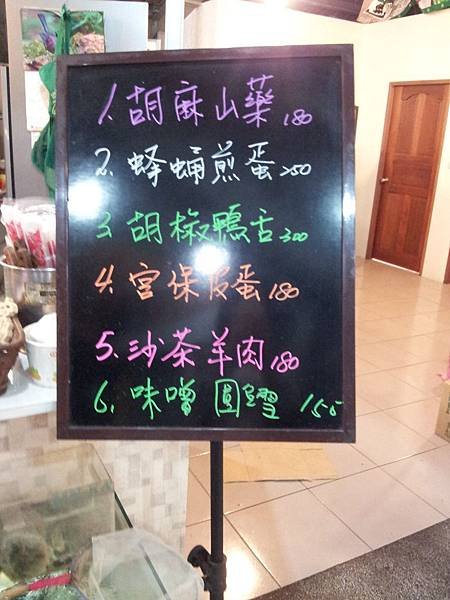 1.胡麻山藥 180
2.蜂蛹煎蛋 250
3.胡椒鴨舌 300
4.宮保皮蛋 180
5.沙茶羊肉 180
6.味噌圓鱈 155